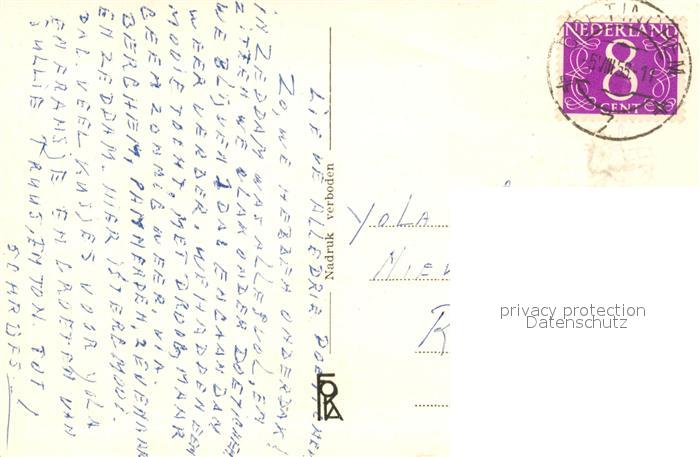 LIEVE ALLEDRIE
ZO, WE HEBBEN ONDERDAK!
IN ZEDDAM WAS ALLES VOL, EN
ZITTEN WE VLAK ONDER DOETICHEM
WE BLIJVEN 1 DAG EN GAAN DAN
WEER VERDER, WE HADDEN EEN
MOOIE TOCHT, MET DROOG, MAAR
GEEN ZONNIG WEER, VIA
BERGHEM, PANNERDEN, ZEVENAAR
EN ZEDDAM. HIER IS 'T ERG MOOI.
DAG. VEEL KUSJES VOOR YOLA
EN FRANSJE EN GROETEN VAN
JULLIE TRUUS, EN TON. TOT
SCHRIJFS!
Nadruk verboden
FOKA
NEDERLAND
8
CENT
YOLA
NIEUW
R
privacy protection
Datenschutz